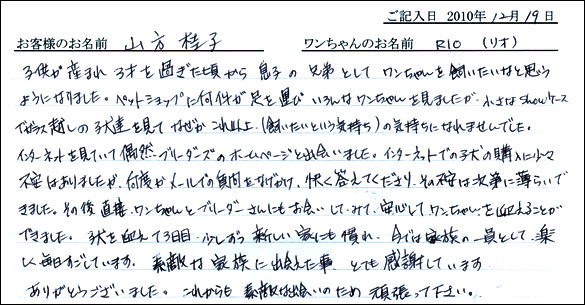 ご記入日 2010年12月19日
お客様のお名前 山方 桂子 ワンちゃんのお名前 RIO (リオ)
子供が産まれ 3才を過ぎた頃から 息子の兄弟として ワンちゃんを飼いたいなと思う
ようになりました。ペットショップに何件か足を運び いろんなワンちゃんを見ましたが、小さなshowケース
でガラス越しの子犬達を見て なぜか これ以上 (飼いたいという気持ち)の気持ちになれませんでした。
インターネットを見ていて偶然 ブリーダーズのホームページと出会いました。インターネットでの子犬の購入に少々
不安はありましたが、何度かメールでの質問をなげかけ、快く答えてくださり、その不安は次第に薄らいで
きました。その後 直接、ワンちゃんとブリーダーさんにもお会いしてみて、安心してワンちゃんを迎えることが
できました。子犬を迎えて3日目 少しずつ 新しい家にも慣れ 今では家族の一員として、楽
しく毎日すごしています。素敵な家族に出会えた事、とても感謝しています
ありがとうございました。これからも素敵な出会いのため 頑張って下さい。